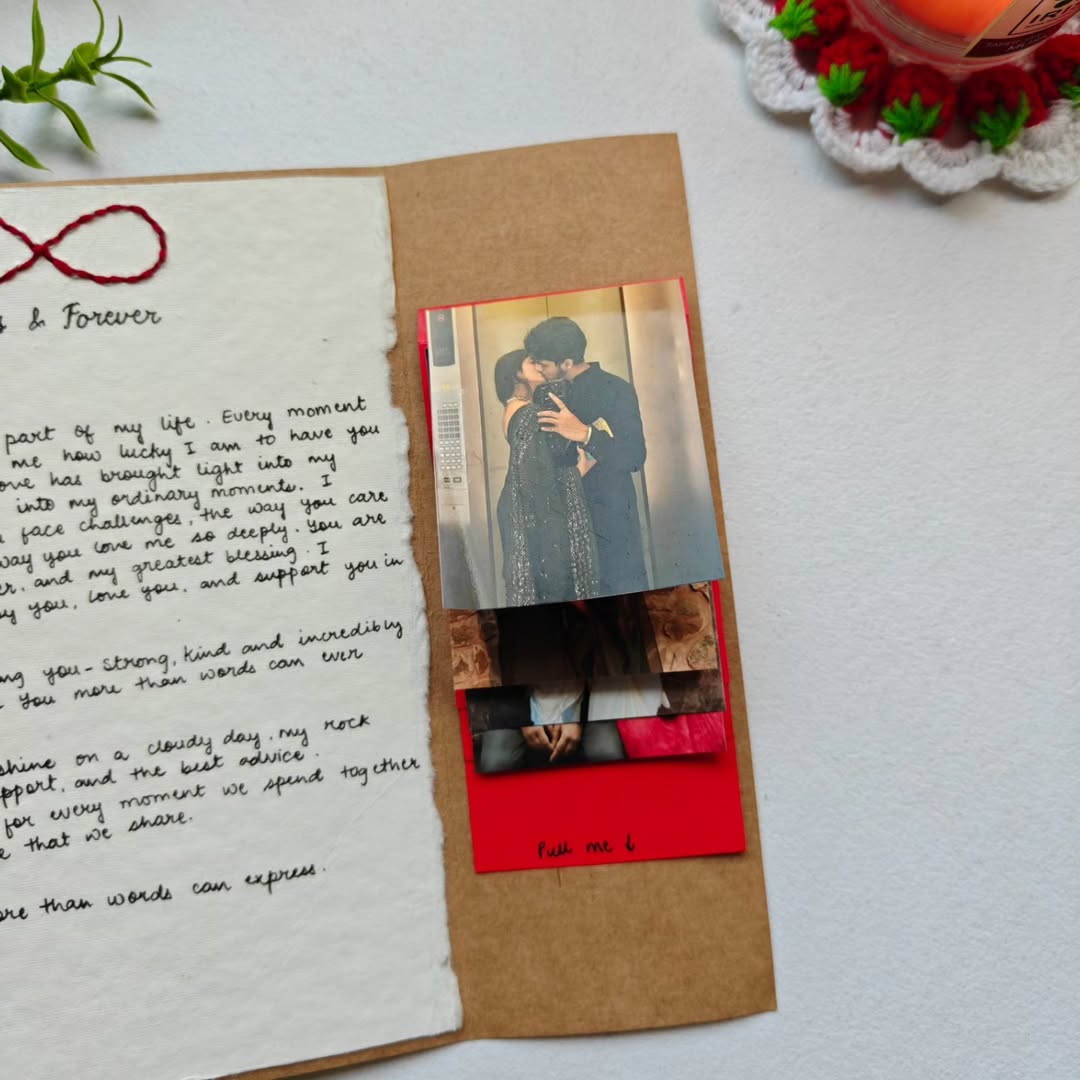 & Forever
part of my life. Every moment
me how lucky I am to have you
love has brought light into my
into my ordinary moments. I
face challenges, the way you care
way you love me so deeply. You are
and my greatest blessing. I
by you, love you, and support you in
you - strong, kind and incredibly
you more than words can ever
shine on a cloudy day, my rock
support, and the best advice.
for every moment we spend together
that we share.
than words can express.
Pull me